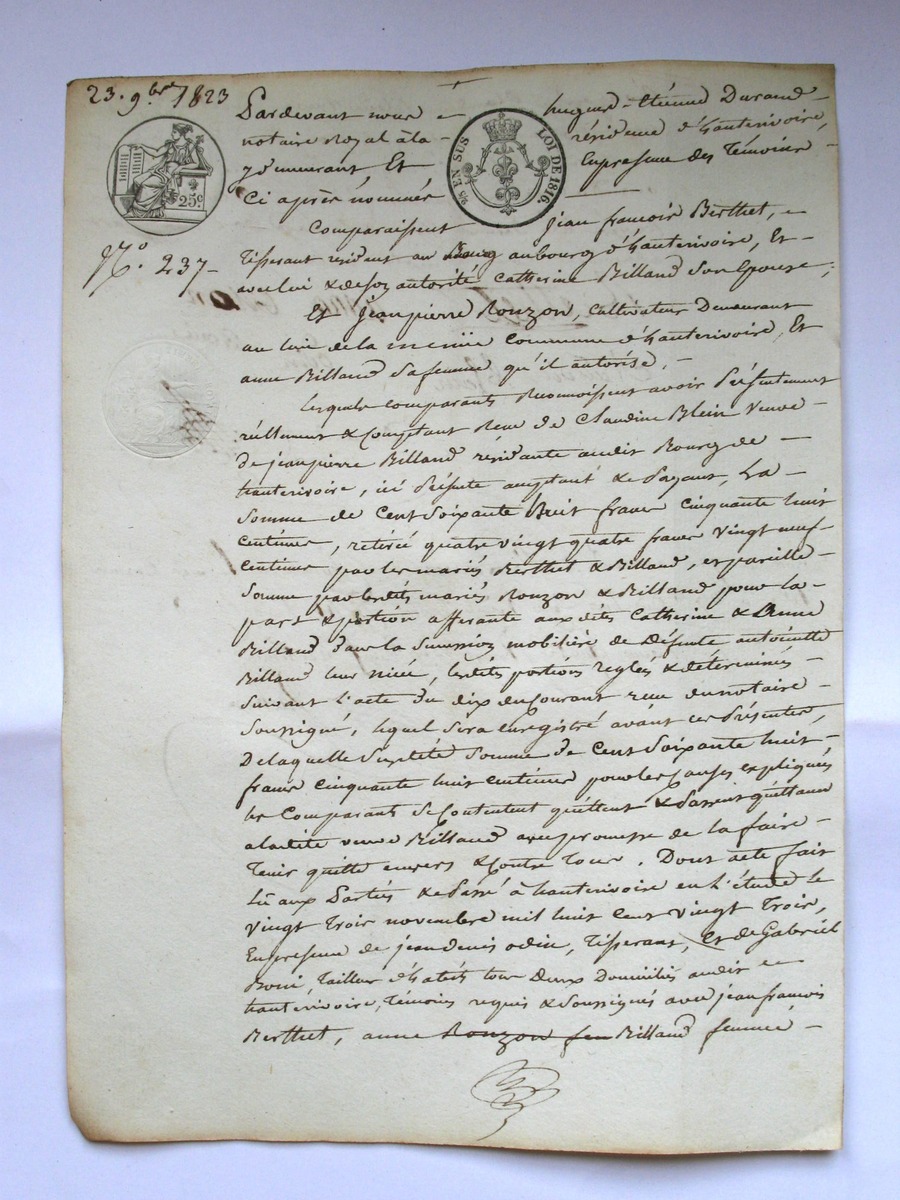 23. 9bre 1823
Pardevant nous hugues-Etiénne Durand
notaire Royal à la résidence d'hauterivoire,
y demeurant, Et En presence des Témoins
Ci après nommés
25c
25 EN SUS LOI DE 1816
Comparaissent Jean françois Berthet,
N.o 237
Tisserant résident au Bourg d'hauterivoire, Et
avec lui & de son autorité Catherine Billand Son Epouse;
Et Jean pierre Rouzon, Cultivateur Demeurant
au lieu de la même Commune d'hauterivoire, Et
anne Billand Sa femme qu'il autorise,
Lesquels comparants Reconnoissent avoir Présentement
réellement & Comptant Reçu de Claudine Blein Veuve
de jean pierre Billand résidante audit Bourg de
hauterivoire, ici présente acceptant & le Payant, La
Somme de Cent Soixante huit francs Cinquante huit
Centimes, retirée quatre vingt quatre francs Vingt neuf
Centimes par les mariés Berthet & Billand, et pareille
Somme par lesdits mariés Rouzon & Billand pour la
part & portion afferante auxdites Catherine & Anne
Billand dans la Succession mobilière de Défunte antoinette
Billand leur niéce, lesdites portions reglés & déterminés
Suivant l'acte du dix du Courant reçu du notaire
Soussigné, lequel Sera enregistré avant ces Présentes,
De laquelle Susdite Somme de Cent Soixante huit
francs Cinquante huit centimes pour les Causes expliqués
les Comparants Se Contentent quittent & Passent quittance
a ladite veuve Billand avec promesse de la faire
Tenir quitte envers & Contre Tous. Dont acte fait
Lû aux Parties & Passé à hauterivoire en l'étude le
Vingt Trois novembre mil huit Cent Vingt Trois,
En presence de jean denis odin, Tisserant, Et de Gabriel
Tailleur d'habits tous Deux Domiciliés audit
hauterivoire, Témoins requis & Soussignés avec jean françois
Berthet, anne Rouzon feu Billand femme